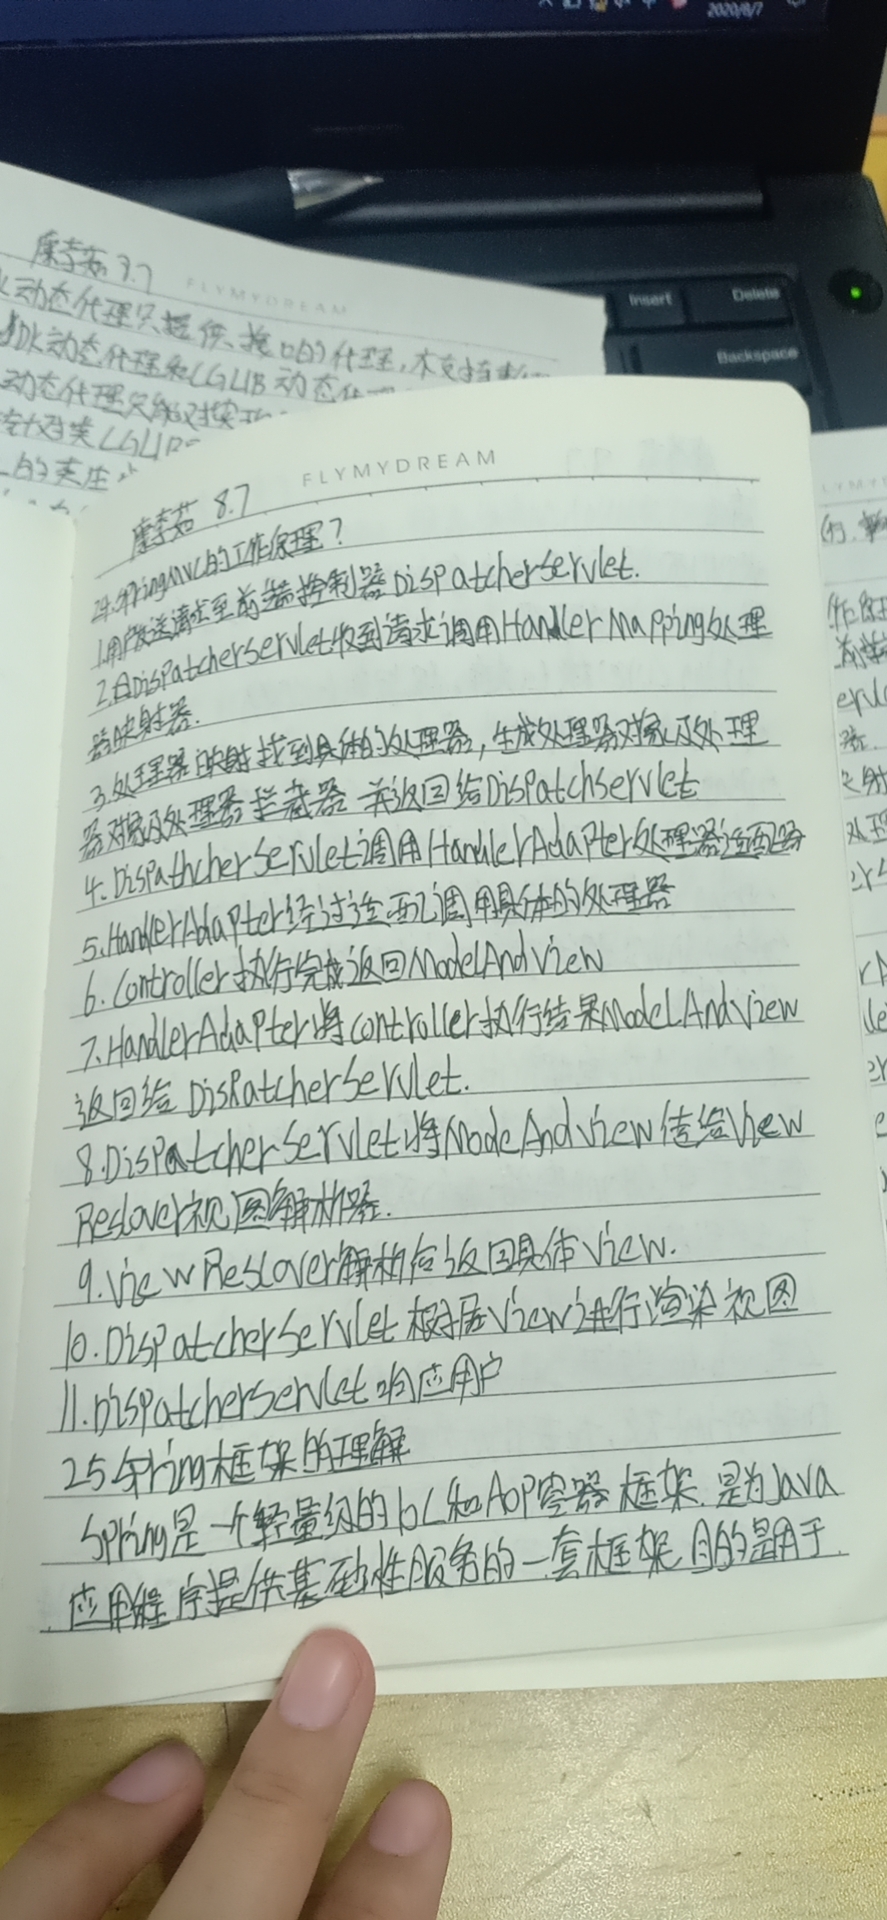 2020/8/7
Insert
Delete
Backspace
康李茹 8.7
FLYMYDREAM
动态代理只提供接口的代理,不支持
JDK动态代理和CGLIB动态代
动态代理只能对实现
针对类CGLIB
FLYMYDREAM
康李茹 8.7
24.SpringMVC的工作原理?
1.用户发送请求至前端控制器DispatcherServlet.
2.由DispatcherServlet收到请求调用HandlerMapping处理
器映射器.
3.处理器映射找到具体的处理器,生成处理器对象及处理
器对象及处理器拦截器 并返回给DispatchServlet
4.DispathcherServlet调用HandlerAdapter处理器适配器
5.HandlerAdapter经过适配调用具体的处理器
6.Controller执行完成返回ModelAndView
7.HandlerAdapter将controller执行结果ModelAndView
返回给 DispatcherServlet.
8.DispatcherServlet将ModeAndView传给View
Reslover视图解析器.
9.ViewReslover解析后返回具体View.
10.DispatcherServlet根据View进行渲染视图
11.DispatcherServlet响应用户
25.Spring框架的理解
Spring是一个轻量级的IoC和AOP容器框架.是为Java
应用程序提供基础性服务的一套框架 目的是用于